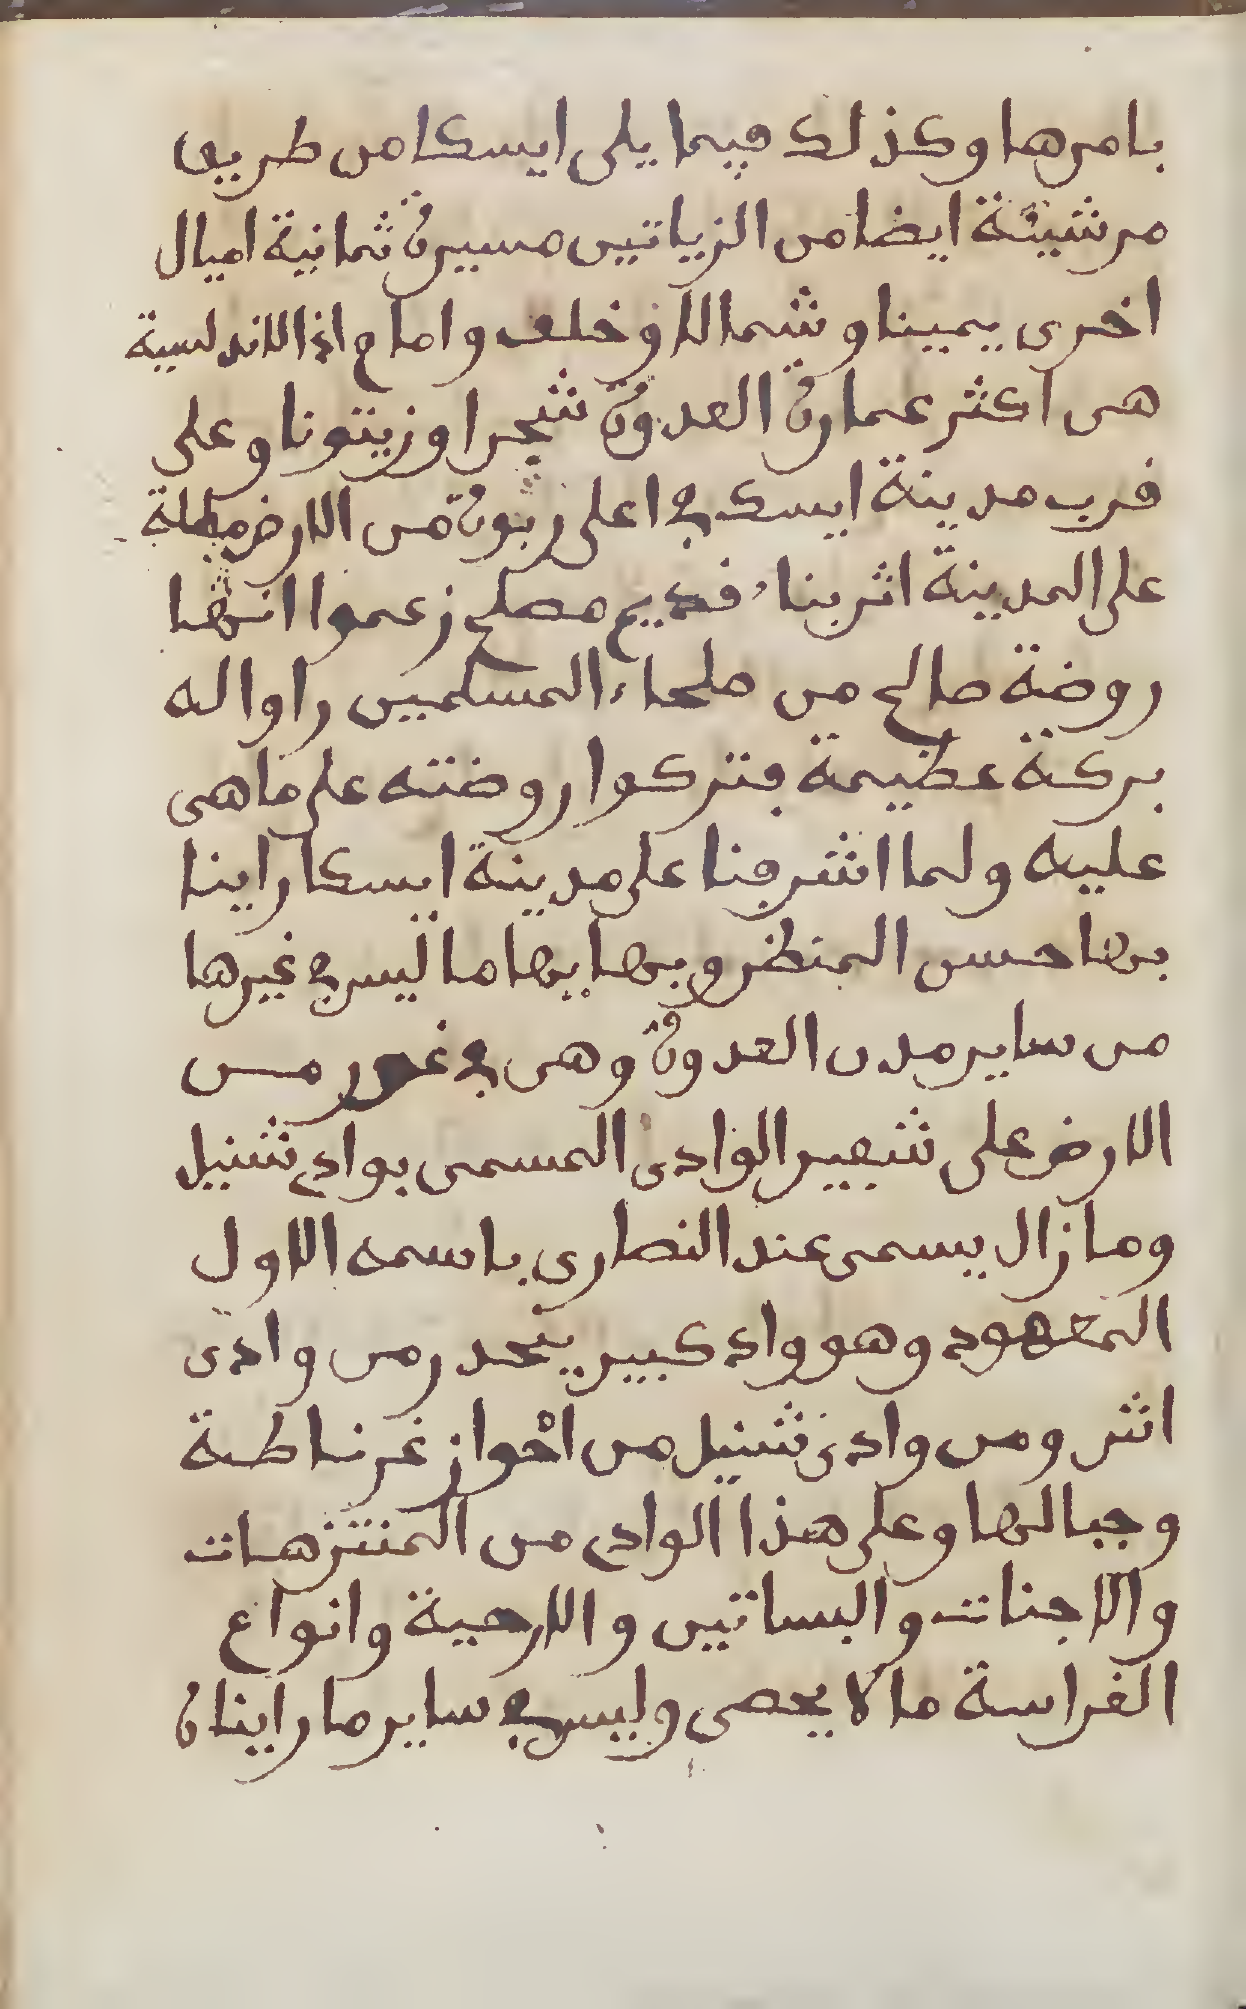 بامرها وكذلك فيما يلى ايسكا من طريق
مرشينة ايضا من الزياتين مسيرة ثمانية اميال
اخرى يمينا وشمالا وخلف وامام اذ الاندلسية
هى اكثر عمارة العدوة شجرا وزيتونا وعلى
قرب مدينة ايسكا فى اعلى ربوة من الارض مطلة
على المدينة اثر بناء قديم مصلح زعموا انها
روضة صالح من صلحاء المسلمين راوا له
بركة عظيمة فتركوا روضته على ما هى
عليه ولما اشرفنا على مدينة ايسكا راينا
بها حسن المنظر وبها بها ما ليس فى غيرها
من ساير مدن العدوة وهى فى غور من
الارض على شفير الوادى المسمى بوادى شنيل
وما زال يسمى عند النصارى باسمه الاول
المعهود وهو واد كبير ينحدر من وادى
اش ومن وادى شنيل من احواز غرناطة
وجبالها وعلى هذا الوادى من المنتزهات
والاجنات والبساتين والارحية وانواع
الغراسة ما لا يحصى وليس فى ساير ما رايناه